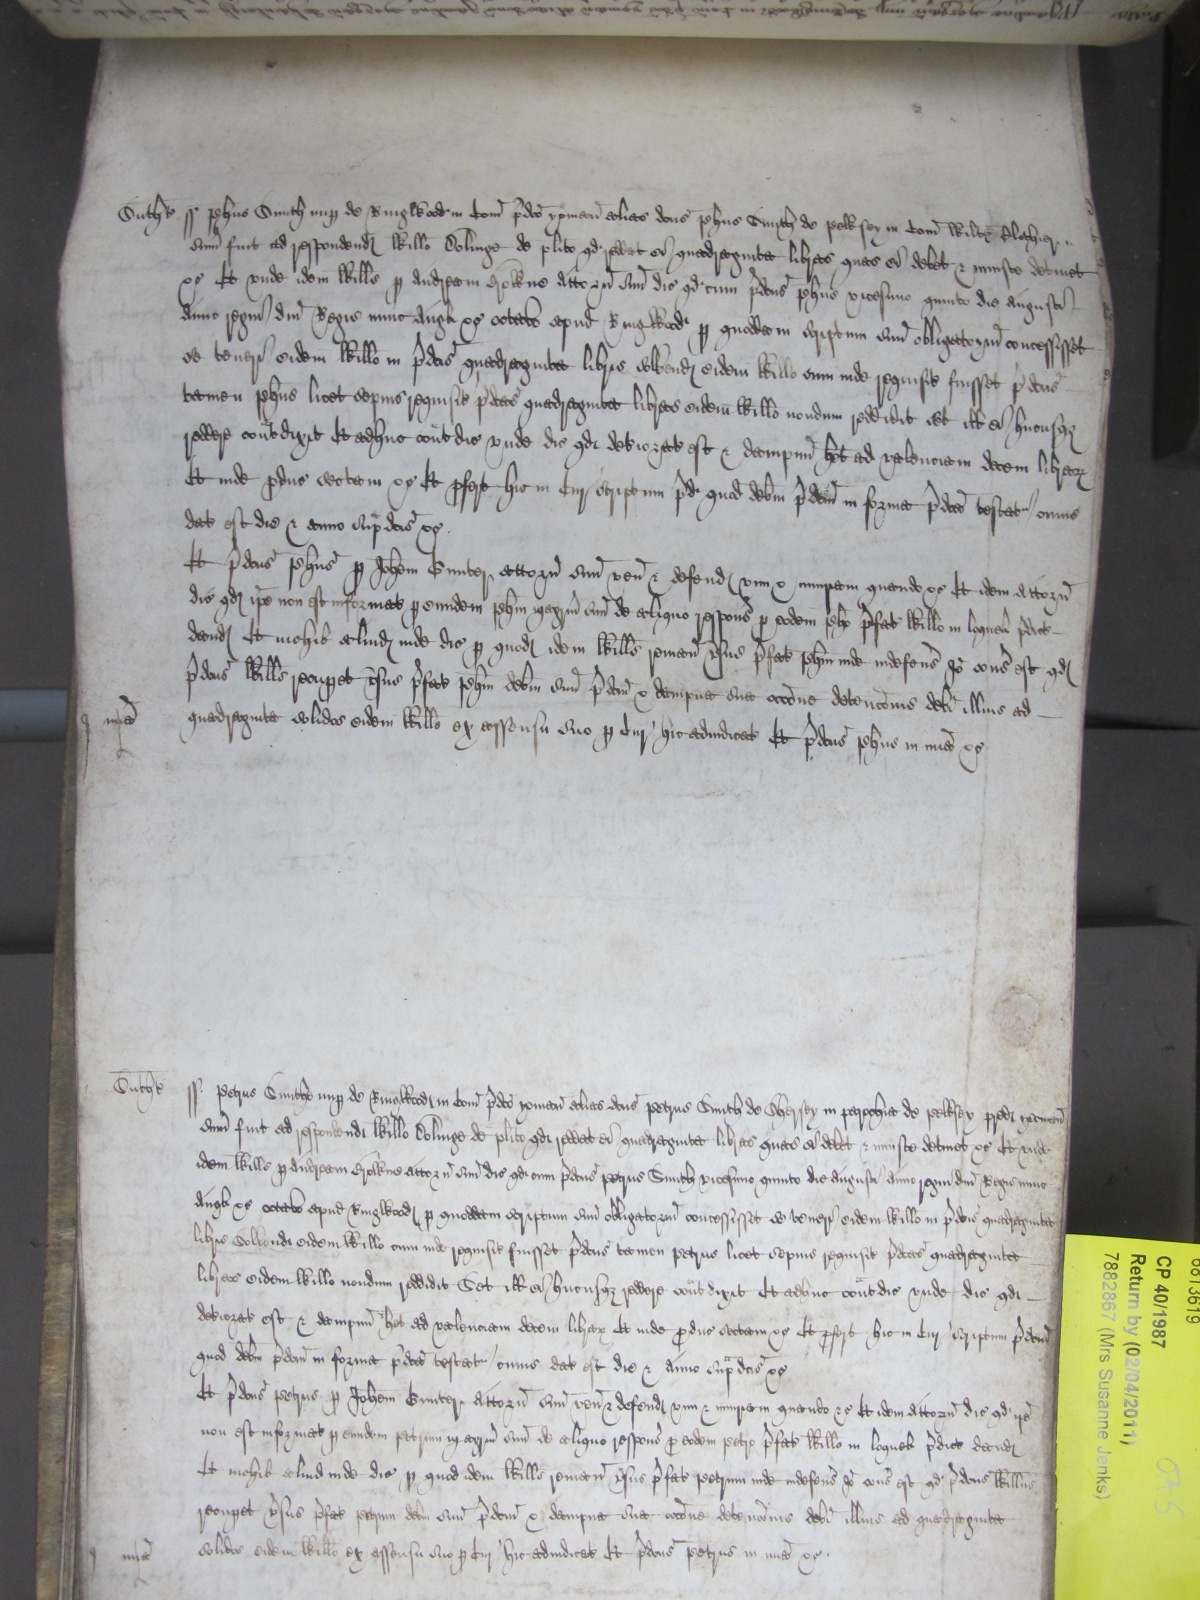 Suth't ss Joh'es Smyth nup de Ryngwode in Com' p'dco yoman alias dcus Joh'es Smyth de in Com' Wiltes Clothier
sum' fuit ad respondend' Will'o Dolinge de pl'ito qd' reddat ei quadraginta libras quas ei debet & iniuste detinet
&c Et unde idem Will's p Andream attorn' suu' dic' qd' cum p'dcus Joh'es vicesimo quinto die Augusti
Anno regni dni Regis nunc Angl' &c octavo apud Ryngwode p quoddam scriptum suu' obligatoriu' concessisset
se teneri eidem Will'o in p'dcis quadraginta libris solvend' eidem Will'o cum inde requisit' fuisset p'dcus
tamen Joh'es licet sepius requisit' p'dcas quadraginta libras eidem Will'o nondum reddidit set ill' ei hucusqz
reddere cont'dixit Et adhuc cont'dic' unde dic' qd' deteriorat' est & dampnu' h'et ad valenciam decem librarz
Et inde p'duc' sectam &c Et p'fert hic in Cur' scriptum p'd' quod debm' p'dcm' in forma p'dca testat' cuius
dat' est die & anno sup'dcis &c
Et p'dcus Joh'es p Joh'em Gunter attorn' suu' ven' & defend' vim & iniuriam quando &c Et idem Attorn'
dic' qd' ip'e non est informat' p eundem Joh'em mag'rm suu' de aliquo respons' p eodem Joh'e p'fat' Will'o in loquela p'dict'
dand' Et nichil aliud inde dic' p quod idem Will's reman' v'sus p'fat' Joh'em inde indefens' Io' cons' est qd'
p'dcus Will's recuperet v'sus p'fat' Joh'em debm' suu' p'dcm & dampna sua occ'one detenc'onis debi' illius ad
mi'a quadraginta solidos eidem Will'o ex assensu suo p Cur' hic adiudicat' Et p'dcus Joh'es in mi'a &c
Suth't ss Petrus Smyth nup de Ryngwode in Com' p'dco yoman alias dcus Petrus Smyth de in parochia de yoman
sum' fuit ad respondend' Will'o Dolinge de pl'ito qd' reddat ei quadraginta libras quas ei debet & iniuste detinet &c Et unde
idem Will's p Andream attorn' suu' dic' qd' cum p'dcus Petrus Smyth vicesimo quinto die Augusti Anno regni dni Regis nunc
Angl' &c octavo apud Ryngwode p quoddam scriptum suu' obligatoriu' concessisset se teneri eidem Will'o in p'dcis quadraginta
libris solvend' eidem Will'o cum inde requisit' fuisset p'dcus tamen Petrus licet sepius requisit' p'dcas quadraginta
libras eidem Will'o nondum reddidit Set ill' ei hucusqz reddere cont'dixit Et adhuc cont'dic' unde dic' qd'
deteriorat' est & dampnu' h'et ad valenciam decem librar' Et inde p'duc' sectam &c Et p'fert hic in Cur' scriptum p'dcm'
quod debm' p'dcm in forma p'dca testat' cuius dat' est die & Anno sup'dcis &c
Et p'dcus Petrus p Joh'em Gunter Attorn' suu' ven' & defend' vim & iniuriam quando &c Et idem Attorn' dic' qd' ip'e
non est informat' p eundem Petrum mag'rm suu' de aliquo respons' p eodem Petro p'fat' Will'o in loquela p'dict' dand'
Et nichil aliud inde dic' p quod idem Will's reman' v'sus p'fat' Petrum inde indefens' Io' cons' est qd' p'dcus Will'us
recuperet v'sus p'fat' Petrum debm' suu' p'dcm & dampna sua occ'one detenc'onis debi' illius ad quadraginta
mi'a solidos eidem Will'o ex assensu suo p Cur' hic adiudicat' Et p'dcus Petrus in mi'a &c
CP 40/1987
Return by (02/04/2011)
7882867 (Mrs Susanne Jenks)